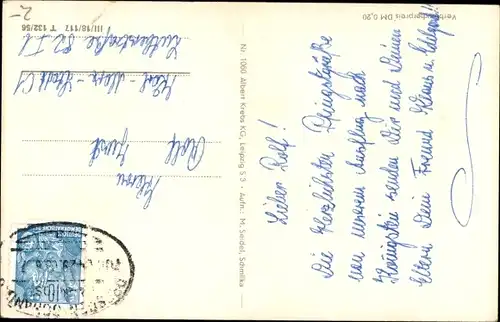 Lieber Rolf!
Die herzlichsten Pfingstgrüße
von unserem Ausflug nach
Königstein senden Dir und Deinen
Eltern Dein Freund Klaus u.
Verbraucherpreis DM 0,20
Nr. 1060 Albert Krebs KG., Leipzig S 3 - Aufn.: M. Seidel, Schmilka
Herrn
Rolf
Karl-Marx-Stadt C1
III/18/117 T 132/56
2-